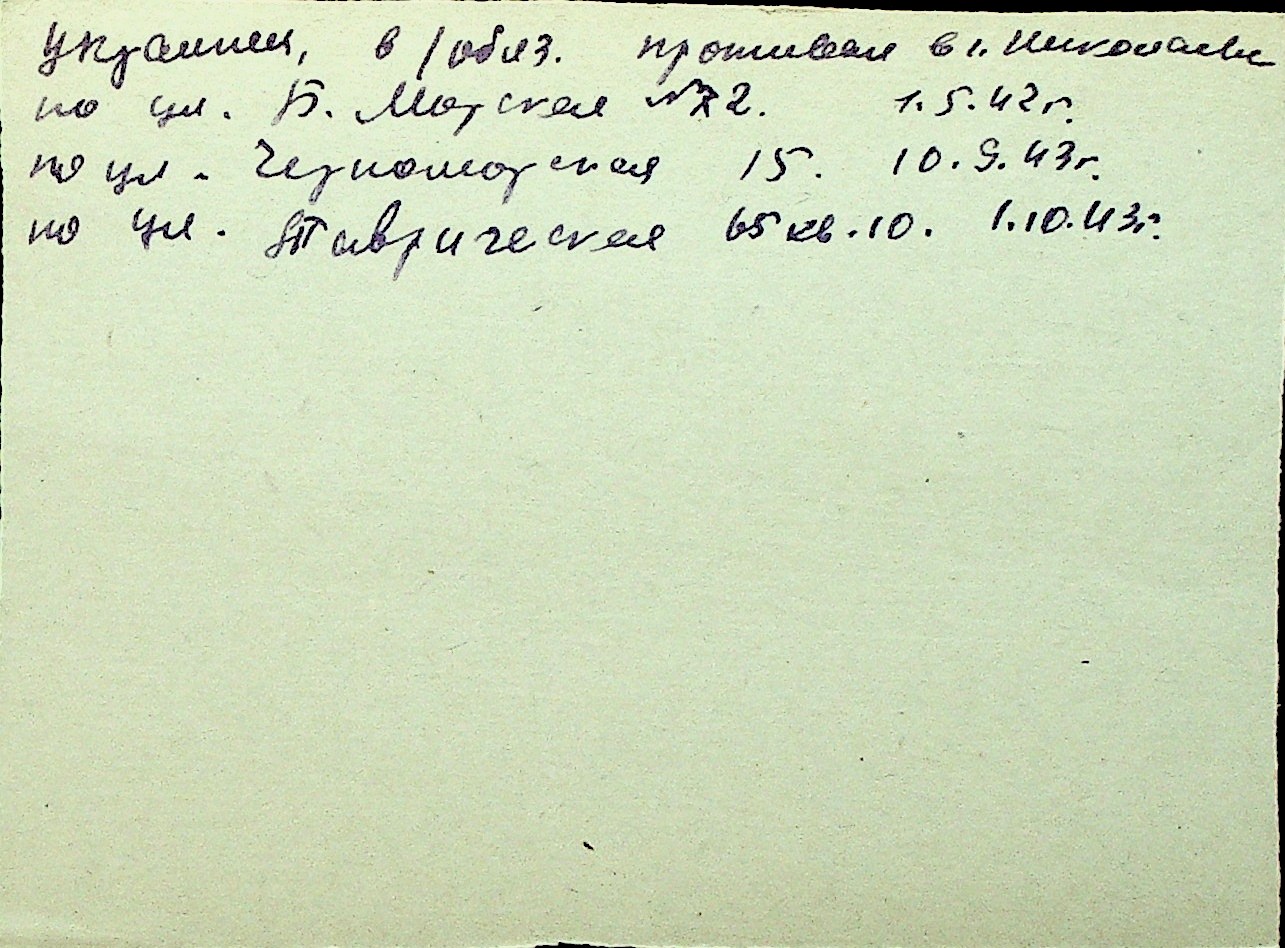 Украинец, в/обяз. проживал в г. Николаеве
по ул. Б. Морская № 72. 1.5.42 г.
по ул. Черноморская 15. 10.9.43 г.
по ул. Таврическая 65 кв. 10. 1.10.43 г.